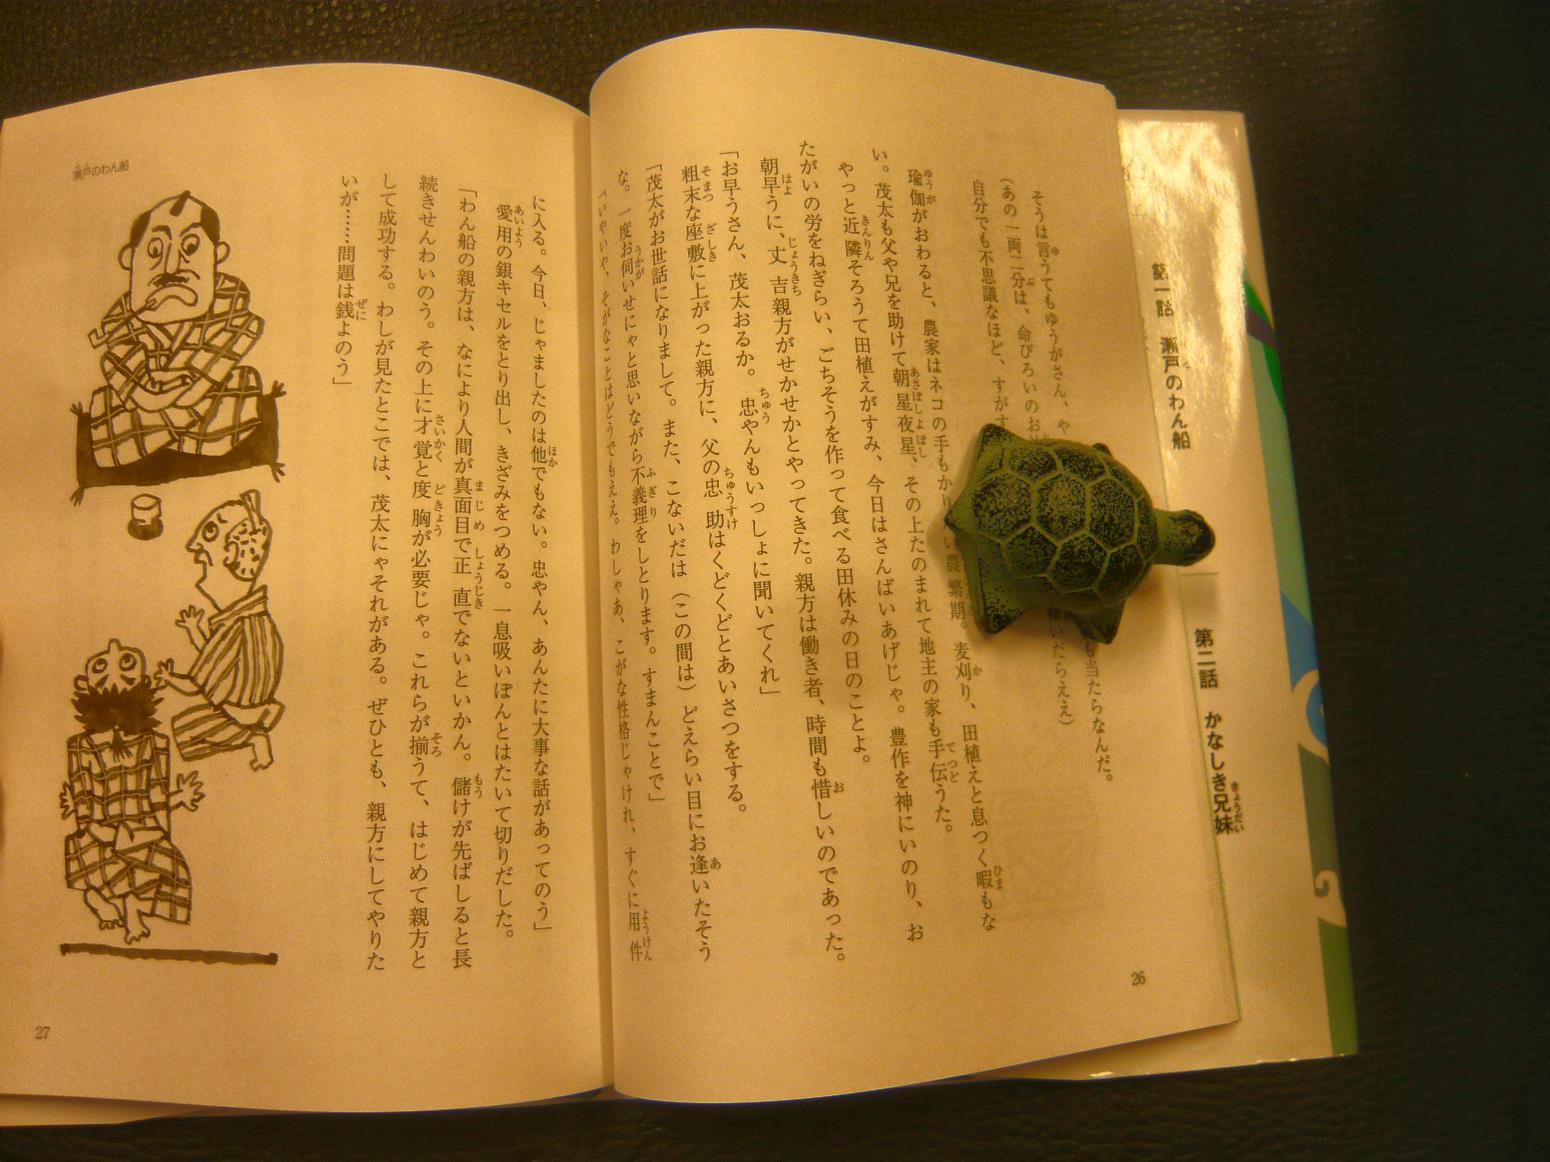 そうは言うてもゆうがさん、や
も当たらなんだ。
(あの一両二分は、命びろいのお
稼いだらええ)
自分でも不思議なほど、すがす
瑜伽がおわると、農家はネコの手もかり
い農繁期。麦刈り、田植えと息つく暇もな
い。茂太も父や兄を助けて朝星夜星、その上たのまれて地主の家も手伝うた。
やっと近隣そろうて田植えがすみ、今日はさんばいあげじゃ。豊作を神にいのり、お
たがいの労をねぎらい、ごちそうを作って食べる田休みの日のことよ。
朝早うに、丈吉親方がせかせかとやってきた。親方は働き者、時間も惜しいのであった。
「お早うさん、茂太おるか。忠やんもいっしょに聞いてくれ」
粗末な座敷に上がった親方に、父の忠助はくどくどとあいさつをする。
「茂太がお世話になりまして。また、こないだは(この間は)どえらい目にお逢いたそう
な。一度お伺いせにゃと思いながら不義理をしとります。すまんことで」
「いやいや、そがなことはどうでもええ。わしゃあ、こがな性格じゃけれ、すぐに用件
26
第一話 瀬戸のわん船
第二話 かなしき兄妹
瀬戸のわん船
に入る。今日、じゃましたのは他でもない。忠やん、あんたに大事な話があってのう」
愛用の銀キセルをとり出し、きざみをつめる。一息吸いぽんとはたいて切りだした。
「わん船の親方は、なにより人間が真面目で正直でないといかん。儲けが先ばしると長
続きせんわいのう。その上に才覚と度胸が必要じゃ。これらが揃うて、はじめて親方と
して成功する。わしが見たとこでは、茂太にゃそれがある。ぜひとも、親方にしてやりた
いが……問題は銭よのう」
27